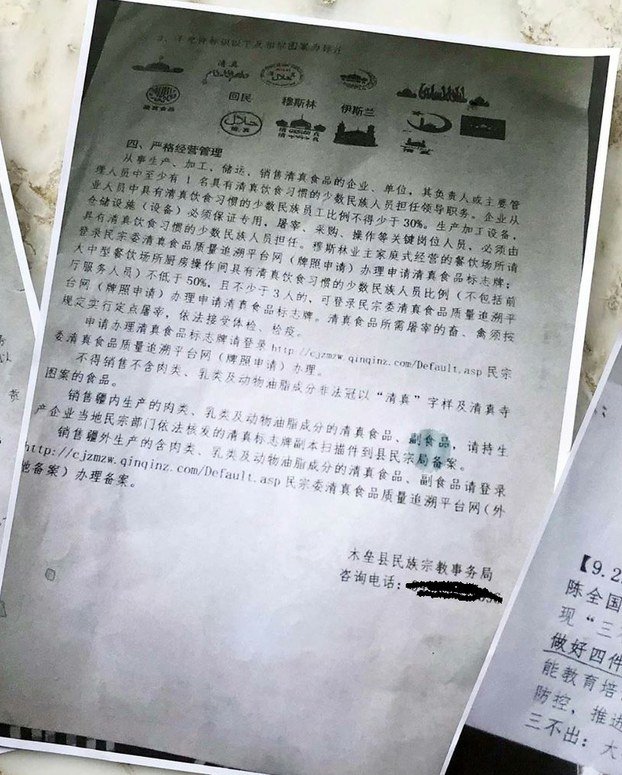 3、不允许标识以下及相似图案为标注
清真
清真食品
回民
穆斯林
伊斯兰
四、严格经营管理
从事生产、加工、储运，销售清真食品的企业、单位，其负责人或主要管
理人员中至少有1名具有清真饮食习惯的少数民族人员担任领导职务。企业从
业人员中具有清真饮食习惯的少数民族员工比例不得少于30%。生产加工设备，
仓储设施（设备）必须保证专用，屠宰、采购、操作等关键岗位人员，必须由
具有清真饮食习惯的少数民族人员担任。穆斯林业主家庭式经营的餐饮场所请
登录民宗委清真食品质量追溯平台网（牌照申请）办理申请清真食品标志牌；
大中型餐饮场所厨房操作间具有清真饮食习惯的少数民族人员比例（不包括前
厅服务人员）不低于50%，且不少于3人的，可登录民宗委清真食品质量追溯平
台网（牌照申请）办理申请清真食品标志牌。清真食品所需屠宰的畜、禽须按
规定实行定点屠宰，依法接受体检、检疫。
申请办理清真食品标志牌请登录http://cjzmzw.qinqinz.com/Default.asp民宗
委清真食品质量追溯平台网（牌照申请）办理。
不得销售不含肉类、乳类及动物油脂成分非法冠以“清真”字样及清真寺
图案的食品。
销售疆内生产的肉类、乳类及动物油脂成分的清真食品、副食品，请持生
产企业当地民宗部门依法核发的清真标志牌副本扫描件到县民宗局备案。
销售疆外生产的含肉类、乳类及动物油脂成分的清真食品、副食品请登录
http://cjzmzw.qinqinz.com/Default.asp民宗委清真食品质量追溯平台网（外
地备案）办理备案。
木垒县民族宗教事务局
咨询电话：
【9.2
陈全国
现“三
做好四件
能教育培
防控，推进
三不出：大